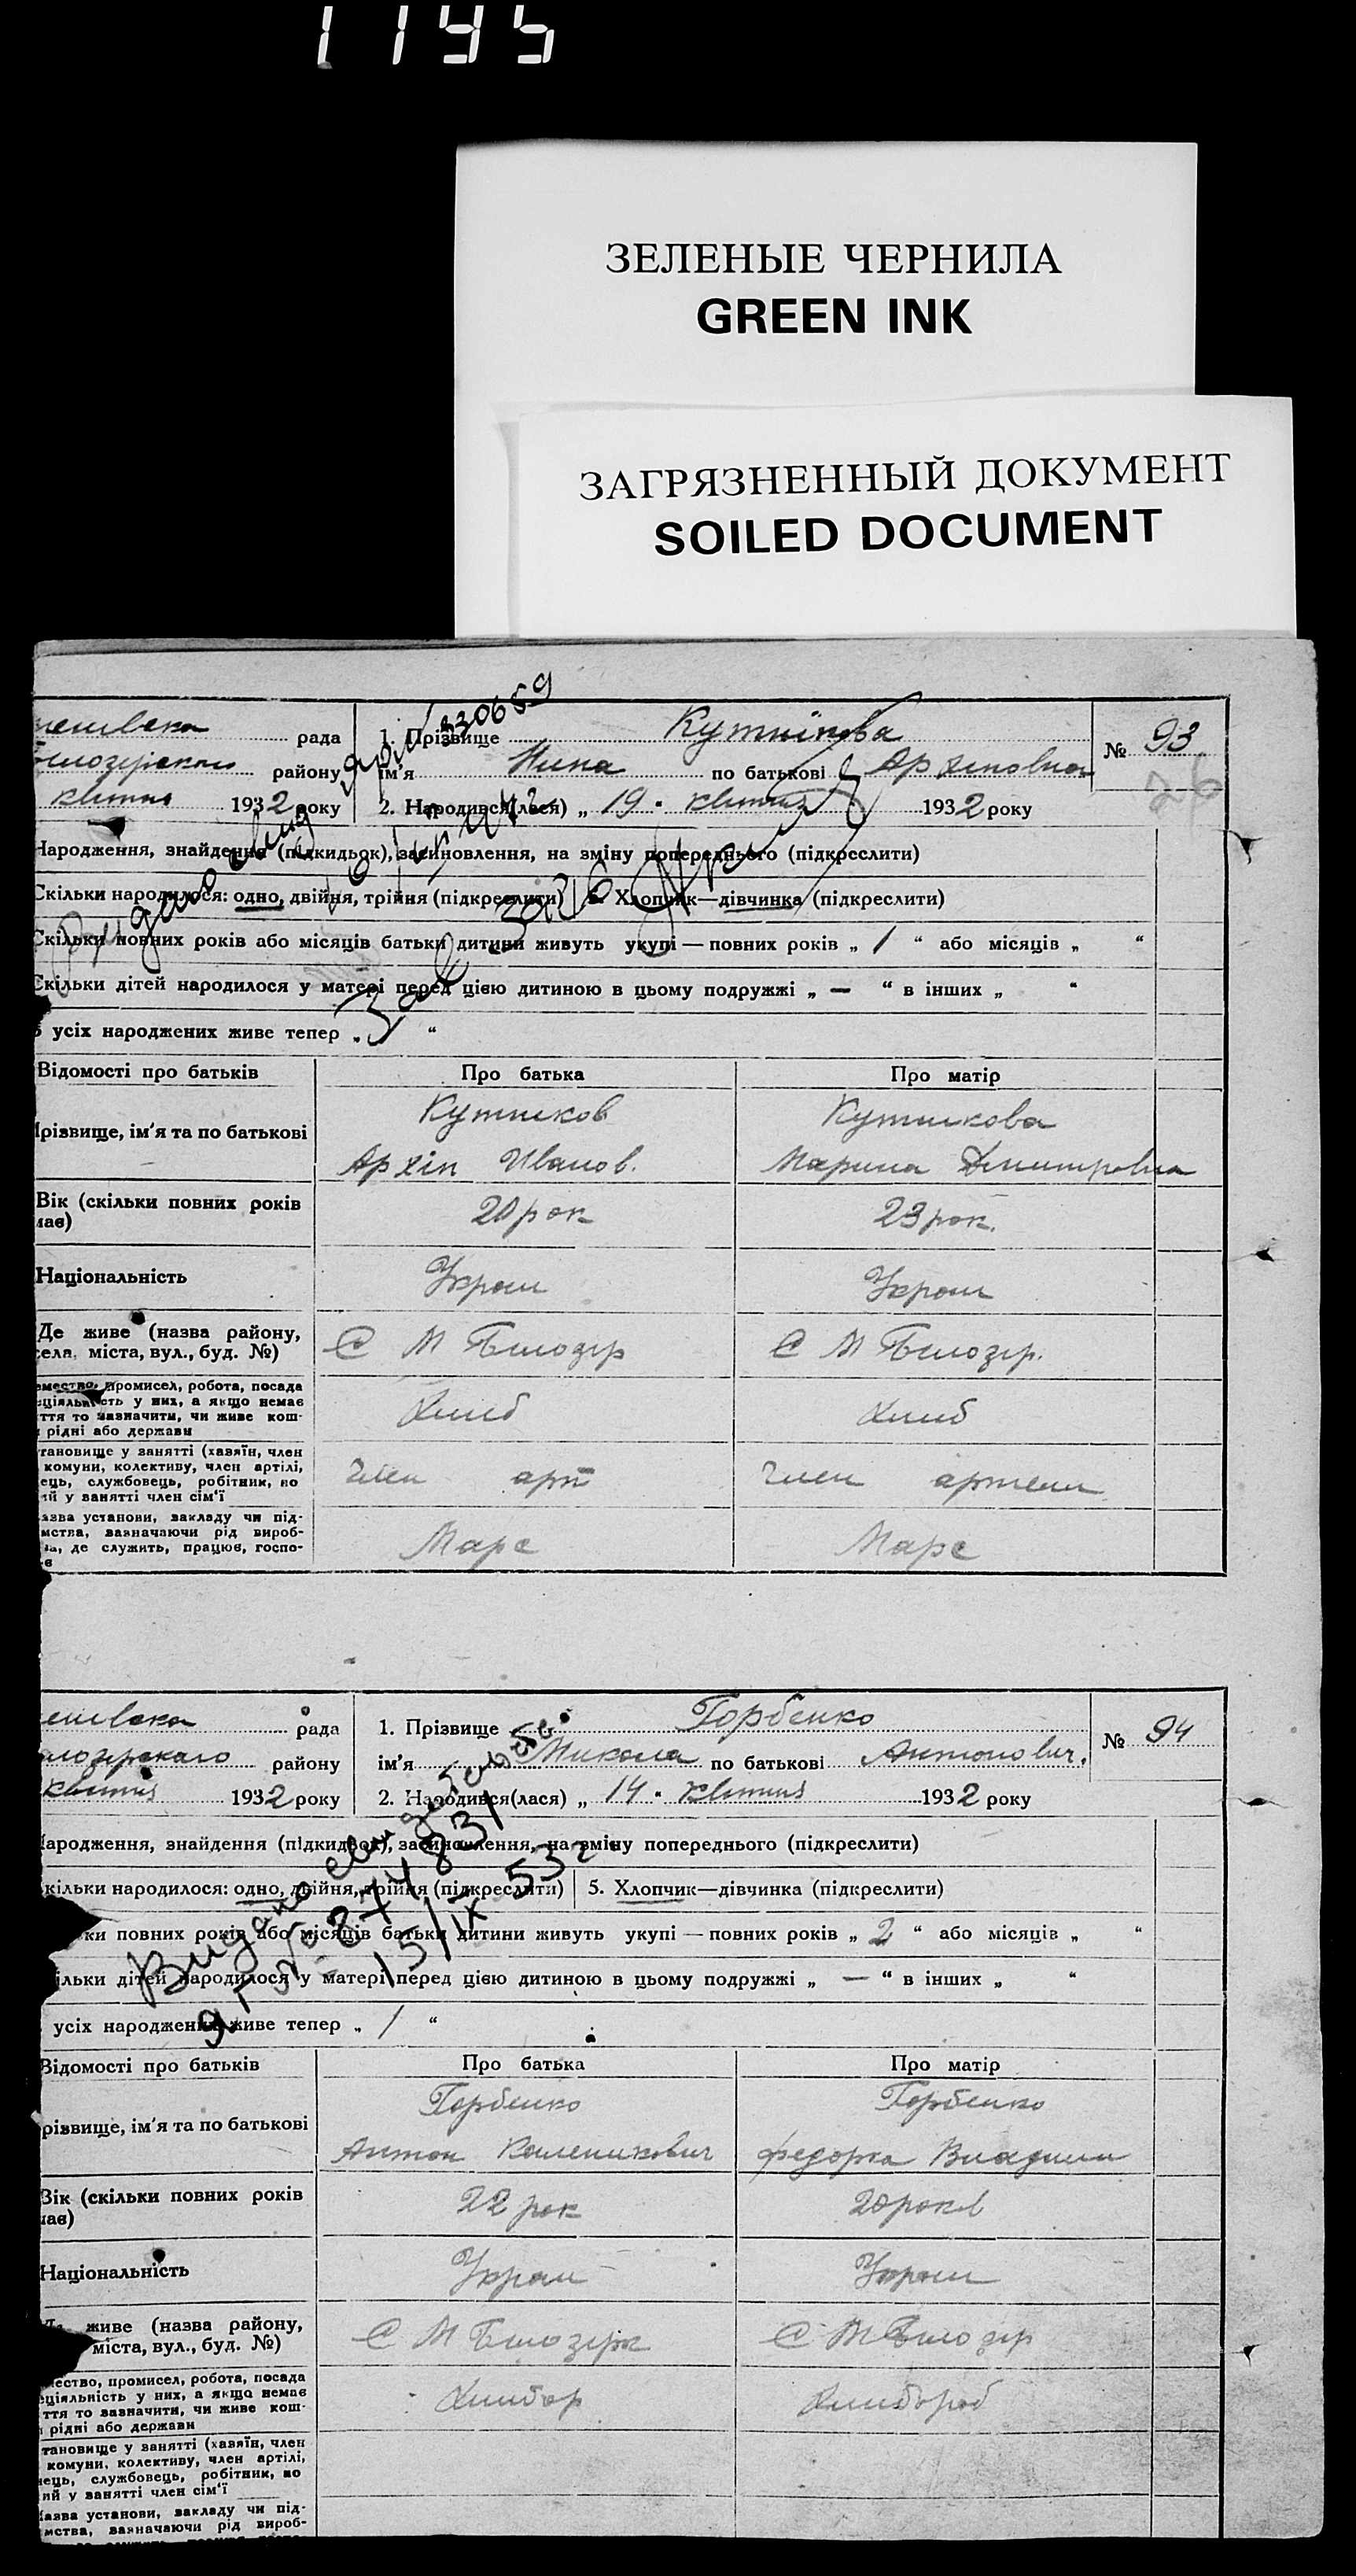 1195
ЗЕЛЕНЫЕ ЧЕРНИЛА
GREEN INK
ЗАГРЯЗНЕННЫЙ ДОКУМЕНТ
SOILED DOCUMENT
рада
району
квітня 1932 року
1. Прізвище Кутнікова
ім'я Нина по батькові Архиповна
2. Народився(лася) „ 19 " квітня 1932 року
№ 93
26
Народження, знайдення (підкидьок), засиновлення, на зміну попереднього (підкреслити)
Скільки народилося: одно, двійня, трійня (підкреслити) 5. Хлопчик—дівчинка (підкреслити)
Скільки повних років або місяців батьки дитини живуть укупі — повних років „ 1 " або місяців „ "
Скільки дітей народилося у матері перед цією дитиною в цьому подружжі „ — " в інших „ "
усіх народжених живе тепер „ 1 "
Відомості про батьків Про батька Про матір
Прізвище, ім'я та по батькові
Кутников
Архіп Иванов.
Кутникова
Марина Дмитровна
Вік (скільки повних років
має)
20 рок
23 рок.
Національність Украін Украін
Де живе (назва району,
села, міста, вул., буд. №)
С М Білозер
С М Білозер.
промисел, робота, посада
у них, а якщо немає
ття то зазначити, чи живе кош-
рідні або держави
Хліб
Хліб
тановище у занятті (хазяїн, член
комуни, колективу, член артілі,
ець, службовець, робітник, по
ий у занятті член сім'ї
Член арт
Член артели
азва установи, закладу чи під-
мства, зазначаючи рід вироб-
ва, де служить, працює, госпо-
Марс
Марс
рада
району
квітня 1932 року
1. Прізвище Горбенко
ім'я Микола по батькові Антонович.
2. Народився(лася) „ 14 " квітня 1932 року
№ 94
Народження, знайдення (підкидьок), засиновлення, на зміну попереднього (підкреслити)
кільки народилося: одно, двійня, трійня (підкреслити) 5. Хлопчик—дівчинка (підкреслити)
ки повних років або місяців батьки дитини живуть укупі — повних років „ 2 " або місяців „ "
ільки дітей народилося у матері перед цією дитиною в цьому подружжі „ — " в інших „ "
усіх народжених живе тепер „ 1 "
Видано свидетельство
№ 274831
15/IX 53 г
Відомості про батьків Про батька Про матір
різвище, ім'я та по батькові
Горбенко
Антон
Горбенко
Федорка Владими
Вік (скільки повних років
має)
22 рок
20 років
Національність Украін Украін
живе (назва району,
міста, вул., буд. №)
С М Білозерк
С М Білозер
ество, промисел, робота, посада
еціяльність у них, а якщо немає
ття то зазначити, чи живе кош-
рідні або держави
Хлибор
Хлибороб
тановище у занятті (хазяїн, член
комуни, колективу, член артілі,
ець, службовець, робітник, по
ий у занятті член сім'ї
Назва установи, закладу чи під-
мства, зазначаючи рід вироб-